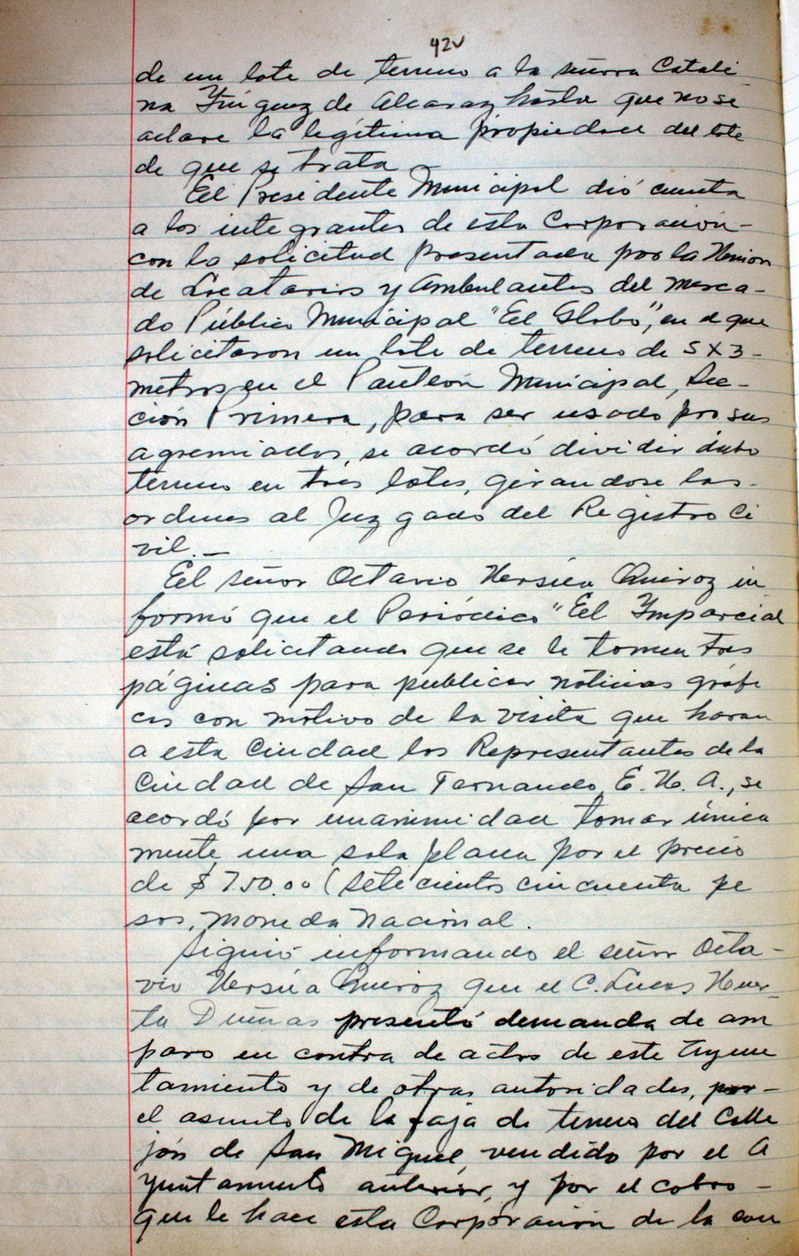 42v
de un lote de terreno a la señora Catali
na Yñiguez de Alcaraz hasta que no se
aclare la legítima propiedad del lote
de que se trata
El Presidente Municipal dió cuenta
a los integrantes de esta Corporación-
con la solicitud presentada por la Union
de Locatarios y Ambulantes del Merca-
do Público Municipal "El Globo", en el que
solicitaron un lote de terreno de 5 X 3-
metros en el Panteón Municipal, Sec-
ción Primera, para ser usado por sus
agremiados, se acordó dividir dicho
terreno en tres lotes, girandose las-
ordenes al Juzgado del Registro Ci
vil.-
El señor Octavio Hersúa Quiroz in
formó que el Periódico "El Ymparcial
está solicitando que se le tomen tres
páginas para publicar noticias gráfi
cas con motivo de la visita que haran
a esta Ciudad los Representantes de la
Ciudad de San Fernando, E. U. A., se
acordó por unanimidad tomar única
mente una sola plana por el precio
de $ 750.00 (Setecientos cincuenta pe
sos, moneda nacional.
Siguió informando el señor Octa-
vio Hersúa Quiroz que el C. Lucas Huer-
ta Dueñas presentó demanda de am
paro en contra de actos de este Ayun
tamiento y de otras autoridades, por-
el asunto de la faja de terreno del Calle
jón de San Miguel, vendido por el A
yuntamiento anterior, y por el cobro-
que le hace esta Corporación de la can